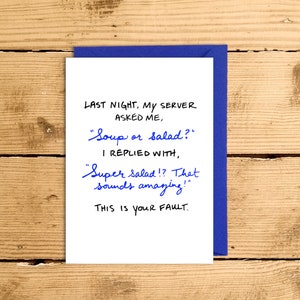 LAST NIGHT, MY SERVER
ASKED ME,
"Soup or salad?"
I REPLIED WITH,
"Super salad!? That
sounds amazing!"
THIS IS YOUR FAULT.